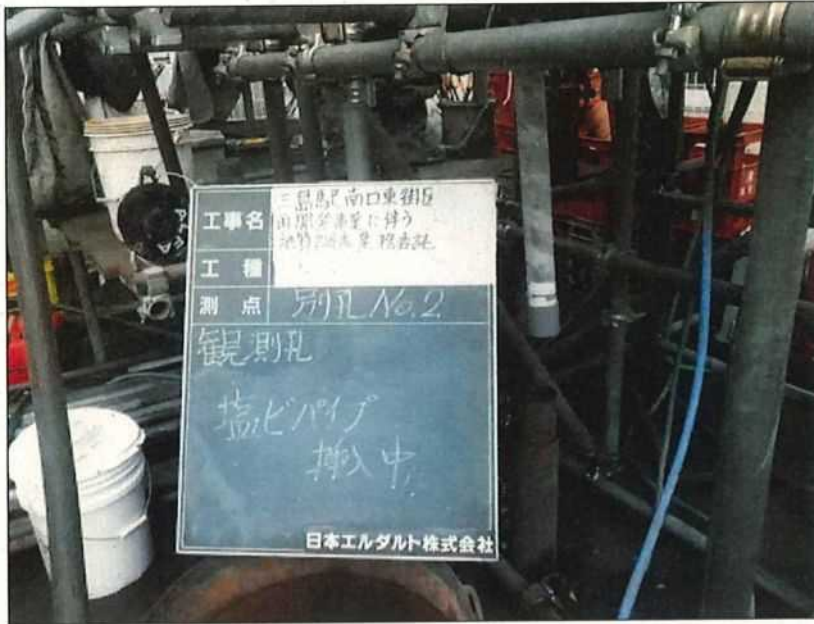 工事名
三島駅南口東街区
再開発事業に伴う
地質調査業務委託
工種
測点
別孔 No.2
観測孔
塩ビパイプ
挿入中
日本エルダルト株式会社